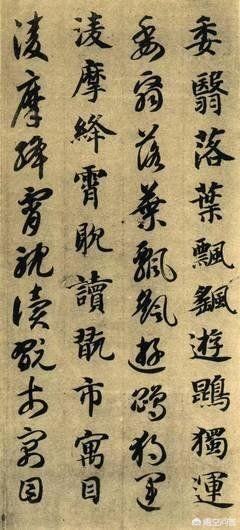 委翳落葉飄颻遊鵾獨運
委翳落葉飄颻遊鵾獨運
淩摩絳霄耽讀翫市寓目
淩摩絳霄耽讀翫市寓目
悟空问答